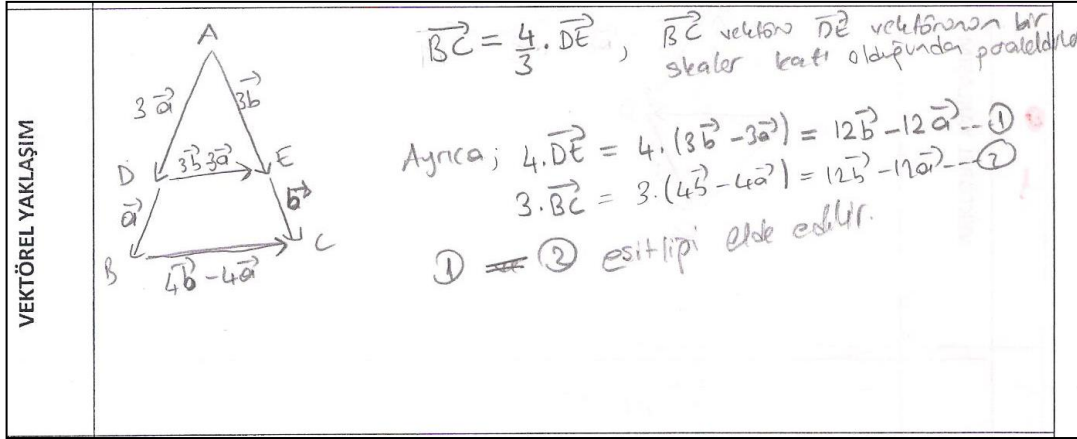 VEKTÖREL YAKLAŞIM
A
3a⃗
3b⃗
D
3b⃗-3a⃗
E
a⃗
b⃗
B
C
4b⃗-4a⃗
BC⃗ = 4/3 . DE⃗ , BC⃗ vektörü DE⃗ vektörünün bir
skaler katı olduğundan paraleldirler
Ayrıca; 4.DE⃗ = 4.(3b⃗-3a⃗) = 12b⃗-12a⃗--①
3.BC⃗ = 3.(4b⃗-4a⃗) = 12b⃗-12a⃗--②
① = ② eşitliği elde edilir.